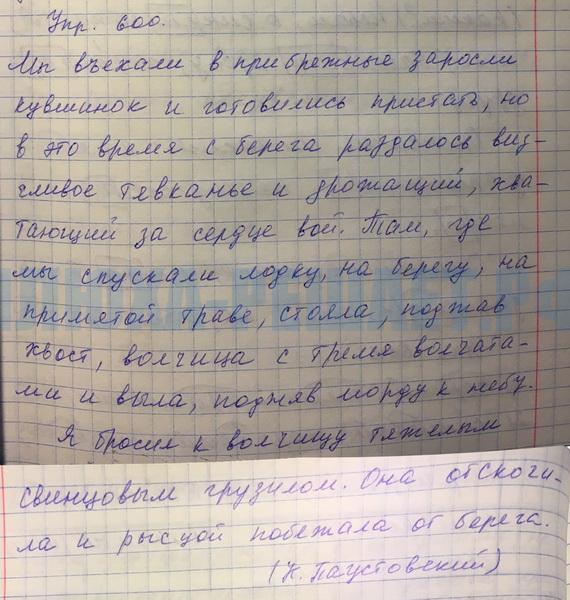 Упр. 600.
Мы въехали в прибрежные заросли
кувшинок и готовились пристать, но
в это время с берега раздалось виз-
гливое тявканье и дрожащий, хва-
тающий за сердце вой. Там, где
мы спускали лодку, на берегу, на
примятой траве, стояла, поджав
хвост, волчица с тремя волчата-
ми и выла, подняв морду к небу.
Я бросил к волчицу тяжелым
свинцовым грузилом. Она отскочи-
ла и рысцой побежала от берега.
(К. Паустовский)